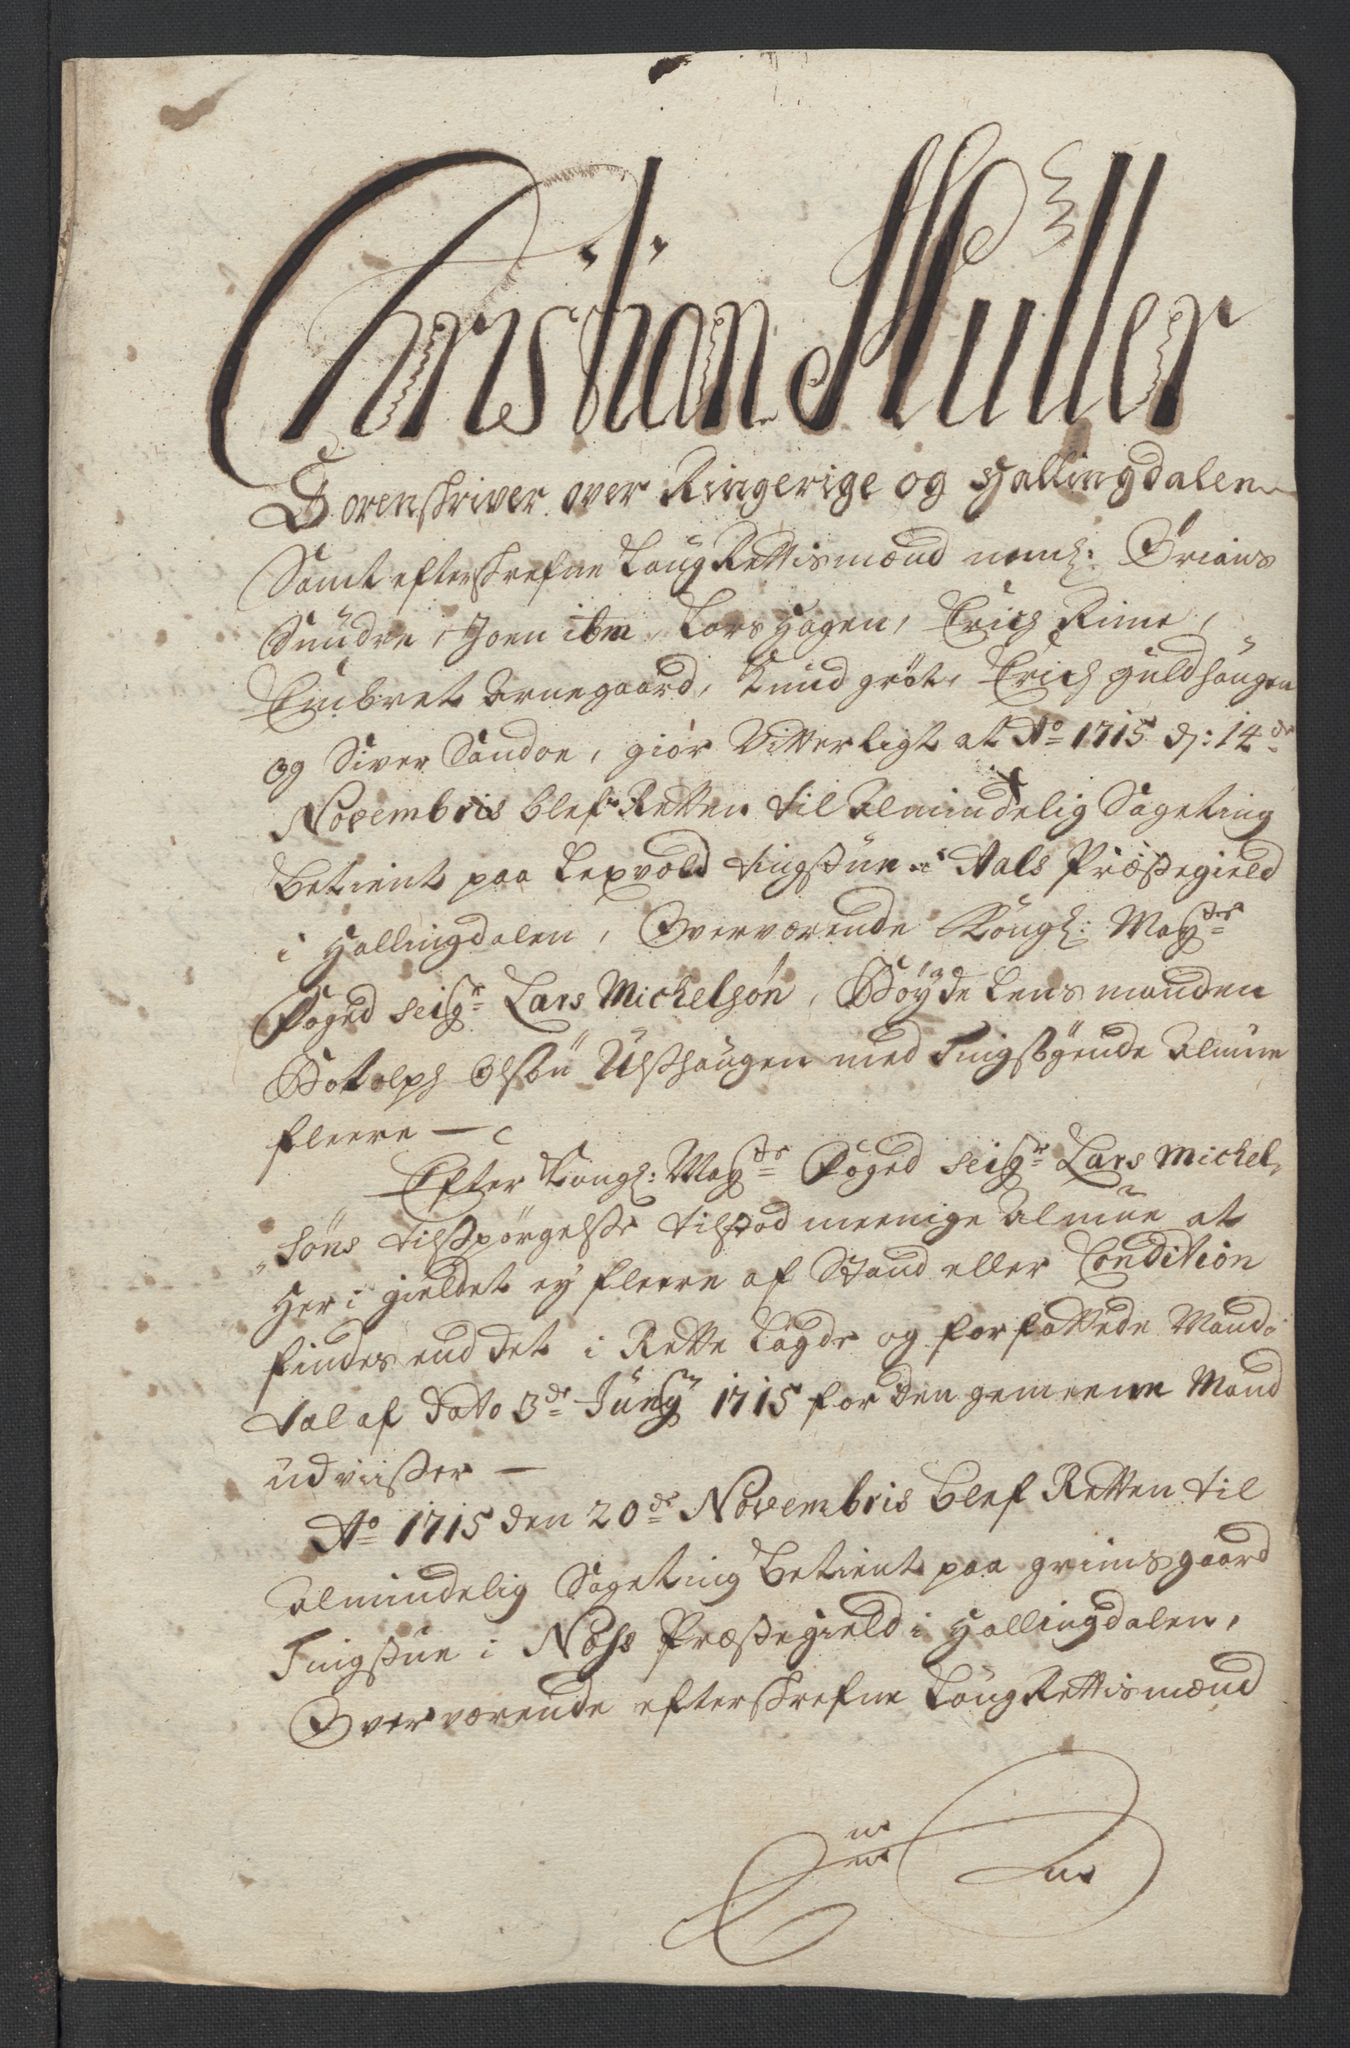 Christian Müller
Sorenskriver over Ringerige og Hallingdalen
Samt efterskrefne LaugRettismænd neml: Ørians
Sundre, Joen ibm, Lars Hagen, Erich Rime,
Embret Arnegaard, Knud grøt, Erich guldhaugen
og Siver Sandoe, giør Vitterligt at Ao 1715 d: 14de
Novembris blef Retten til Almindelig Sageting
betient paa Lexvold tingstue i Aals Præstegield
i Hallingdalen, Overværende Kongl: Mayts
Foged seigr Lars Michelsøn, Bøyde Lensmanden
Botolph Olsøn Ulshaugen med Tingsøgende Almue
fleere —
Efter Kongl: Mayts Foged seigr Lars Michel-
søns tilspørgelse tilstod meenige Almue at
Her i gieldet ey fleere af Stand eller Condition
findes end det i Rette lagde og forfattede Mand-
tal af Dato 3de Juny 1715 for den gemeene Mand
udviisser —
Ao 1715 den 20de Novembris blef Retten til
Almindelig Sageting betient paa grimsgaard
Tingstue i Næss Præstegield i Hallingdalen,
Overværende efterskrefne LaugRettismænd